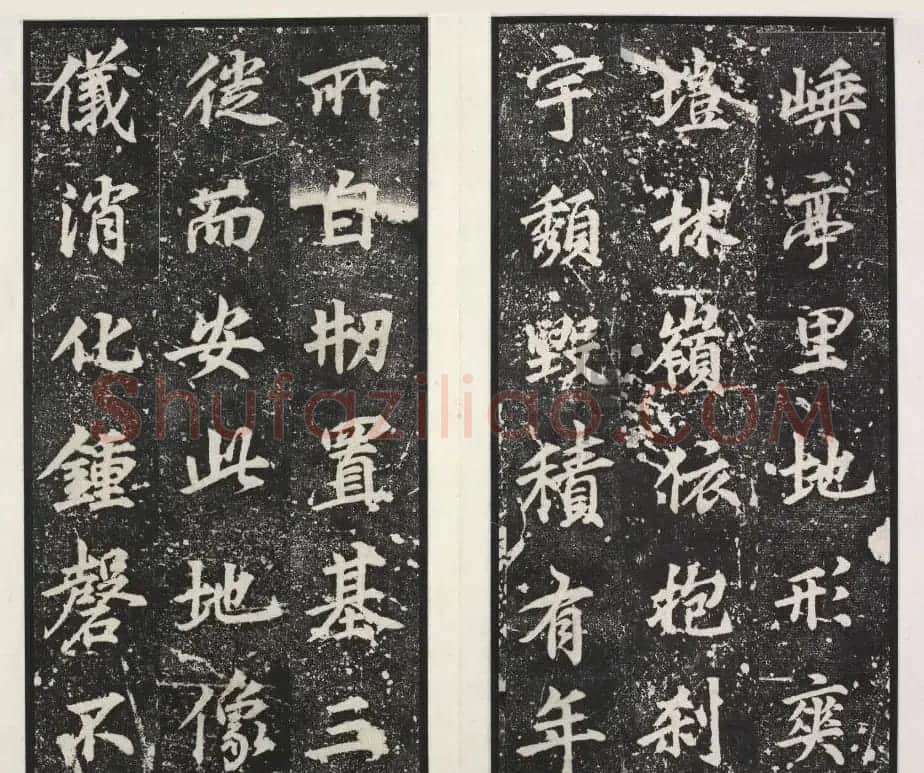 嵊亭里地形爽
塏林嶺依抱刹
宇頽毀積有年
所自刱置基三
徙而安此地像
儀消化鍾磬不
Shufaziliao.COM